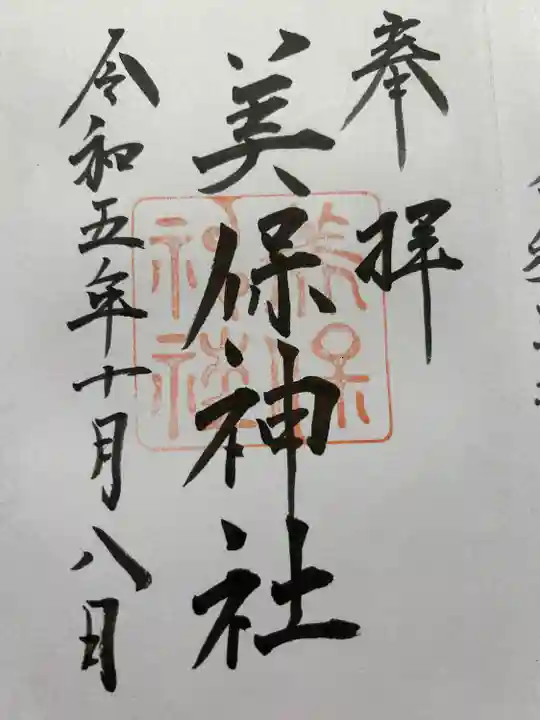 奉拝
美保神社
美保
神社
令和五年十月八日